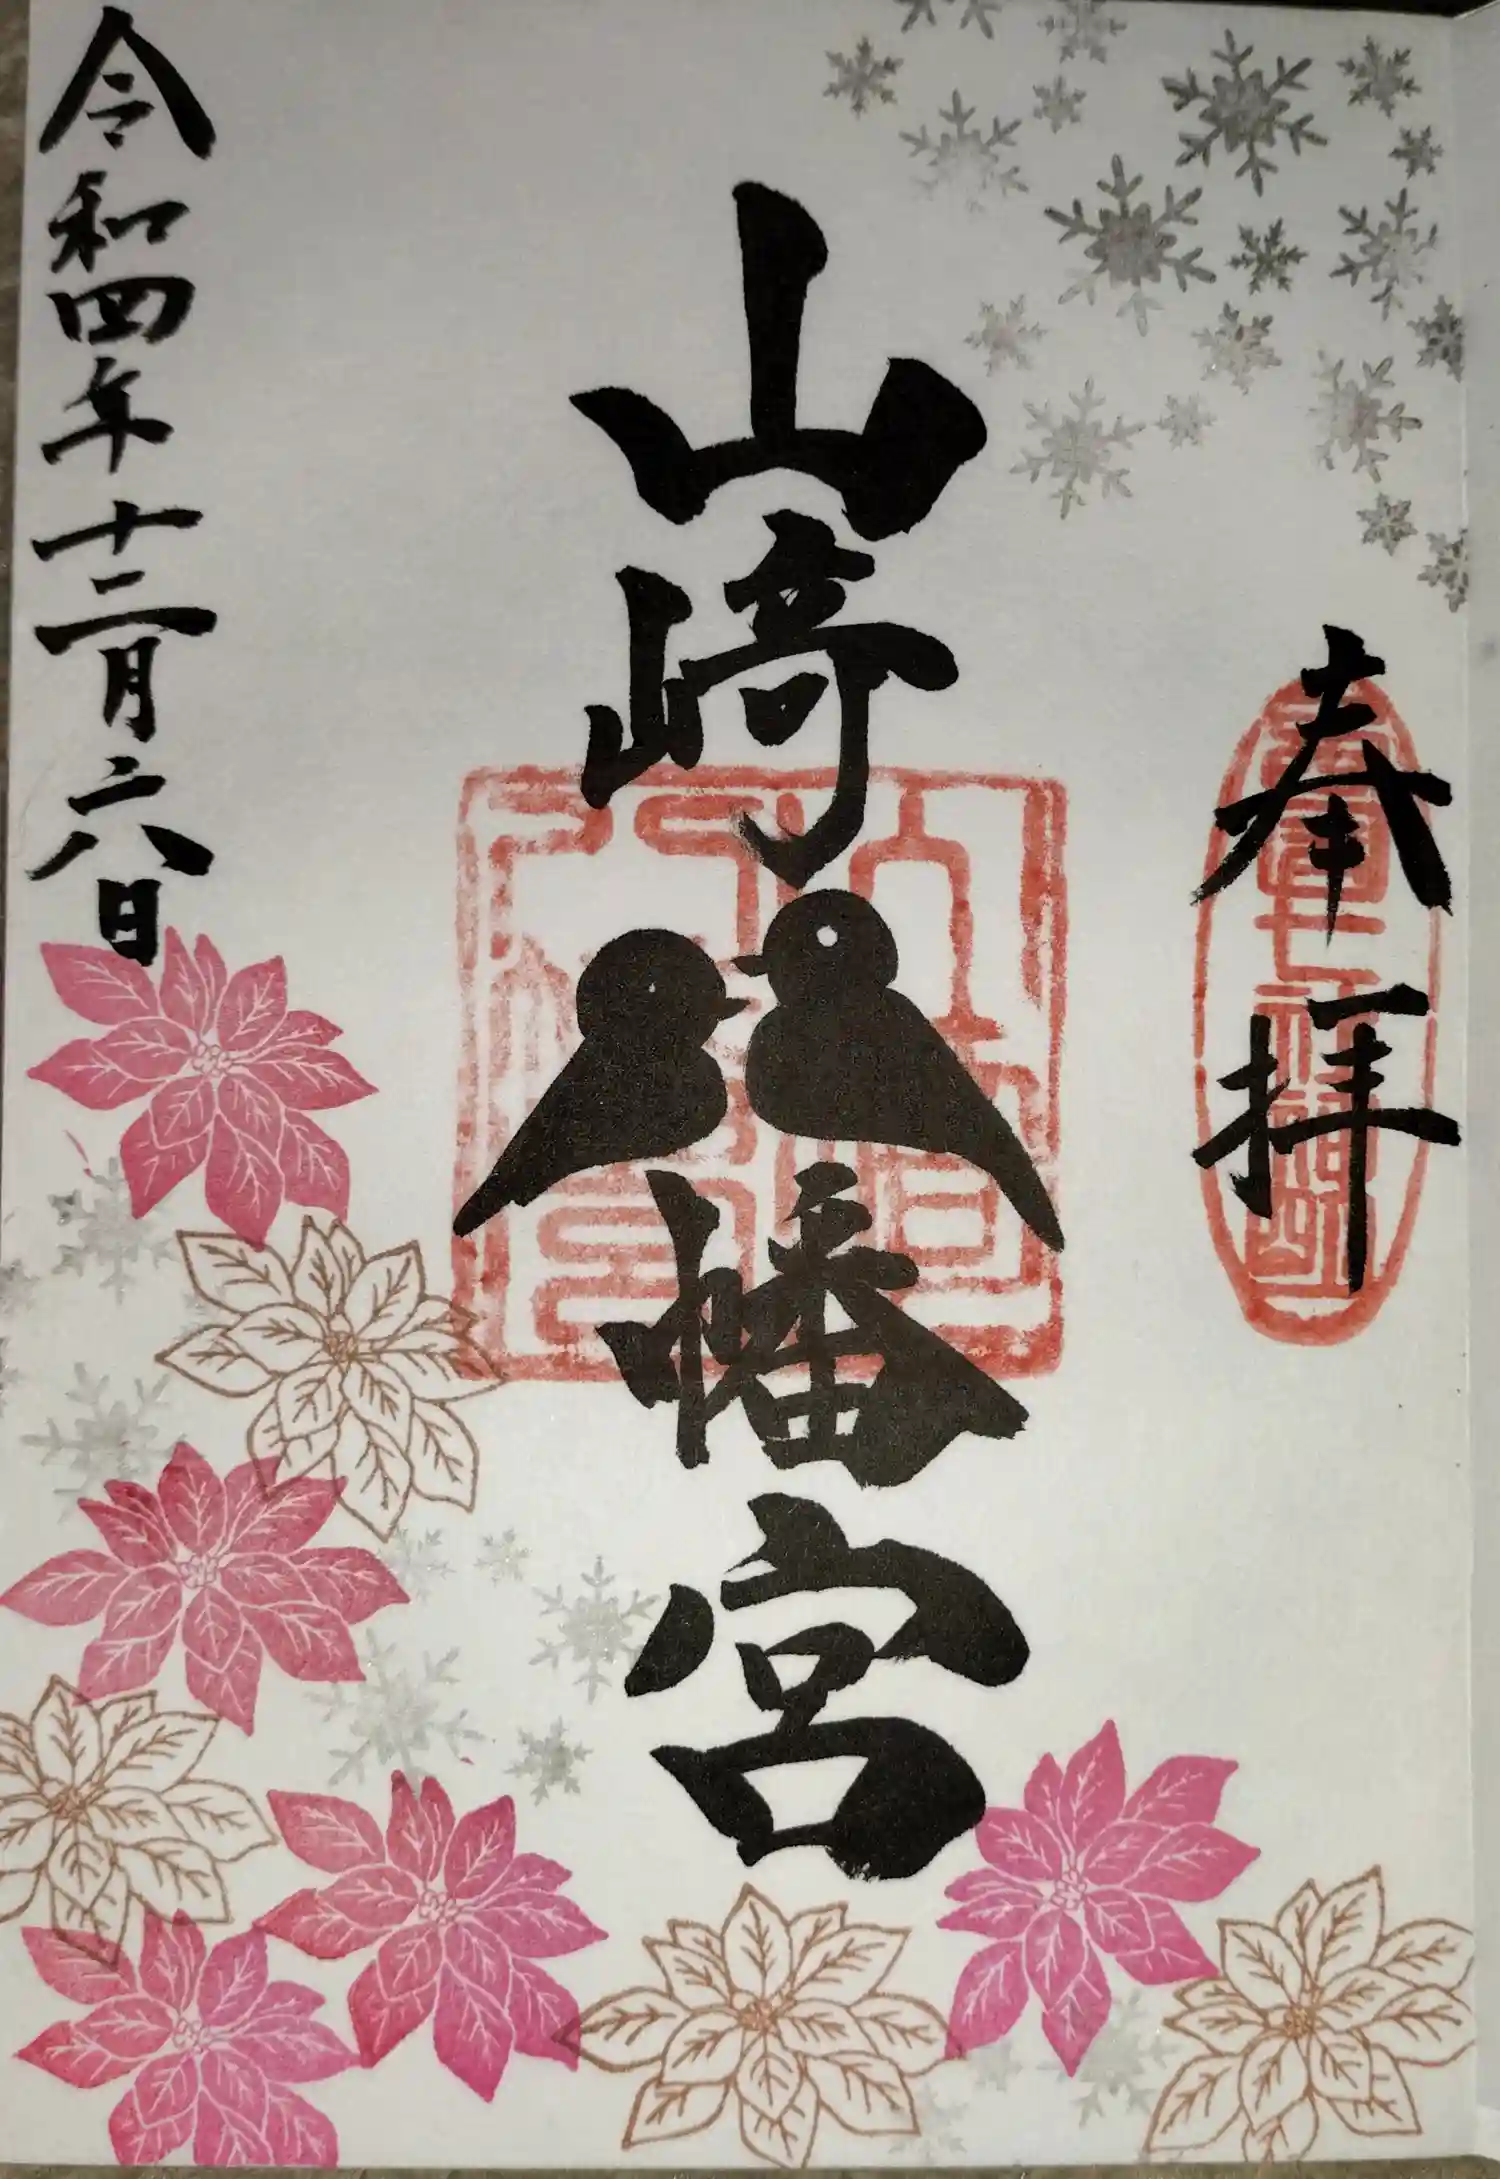 奉拝
山崎八幡宮
令和四年十二月六日